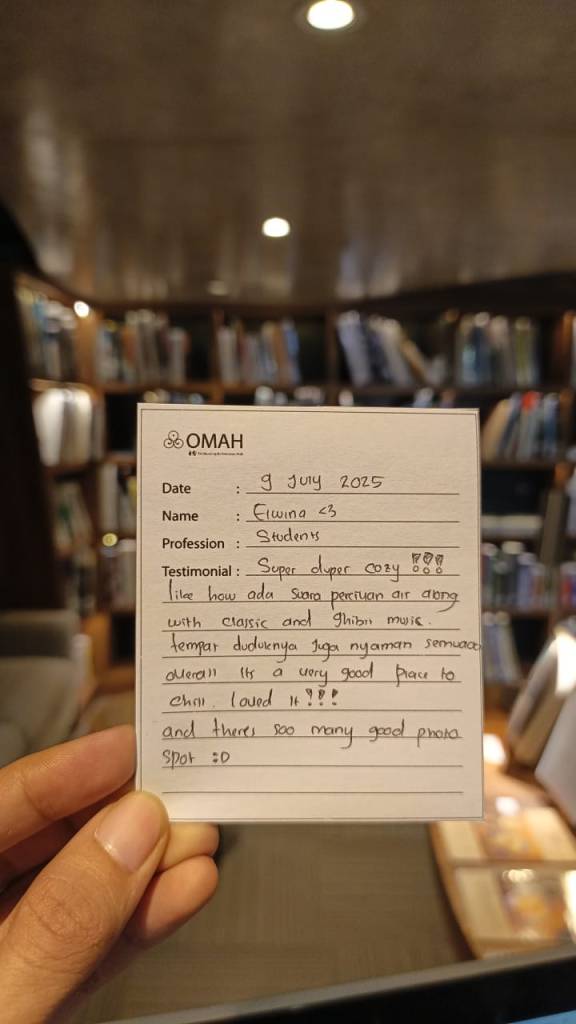 OMAH
Date : 9 July 2025
Name : Elwina <3
Profession : Students
Testimonial : Super duper cozy !!!
like how ada suara percikan air along
with classic and ghibli music.
tempat duduknya juga nyaman semuaaa
overall its a very good place to
chill. loved it !!!
and theres soo many good photo
spot :D